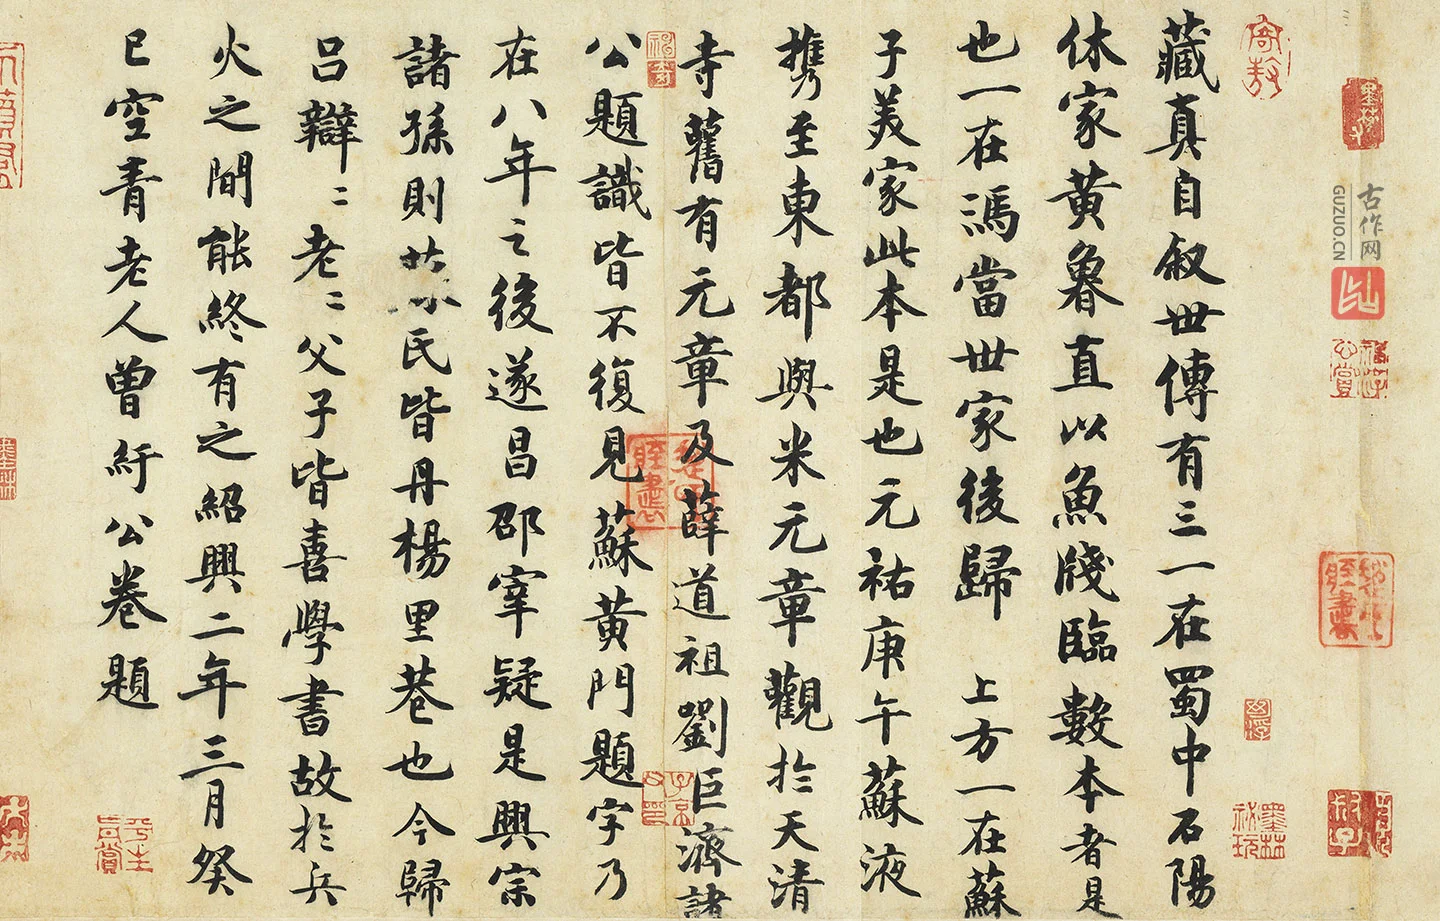 藏真自敘世傳有三一在蜀中石陽
休家黃魯直以魚牋臨數本者是
也一在馮當世家後歸 上方一在蘇
子美家此本是也元祐庚午蘇液
攜至東都與米元章觀於天清
寺舊有元章及薛道祖劉巨濟諸
公題識皆不復見蘇黃門題字乃
在八年之後遂昌邵宰疑是興宗
諸孫則蘇氏皆丹楊里巷也今歸
呂辯二老二父子皆喜學書故於兵
火之間能終有之紹興二年三月癸
巳空青老人曾紆公卷題
古作网
GUZUO.CN